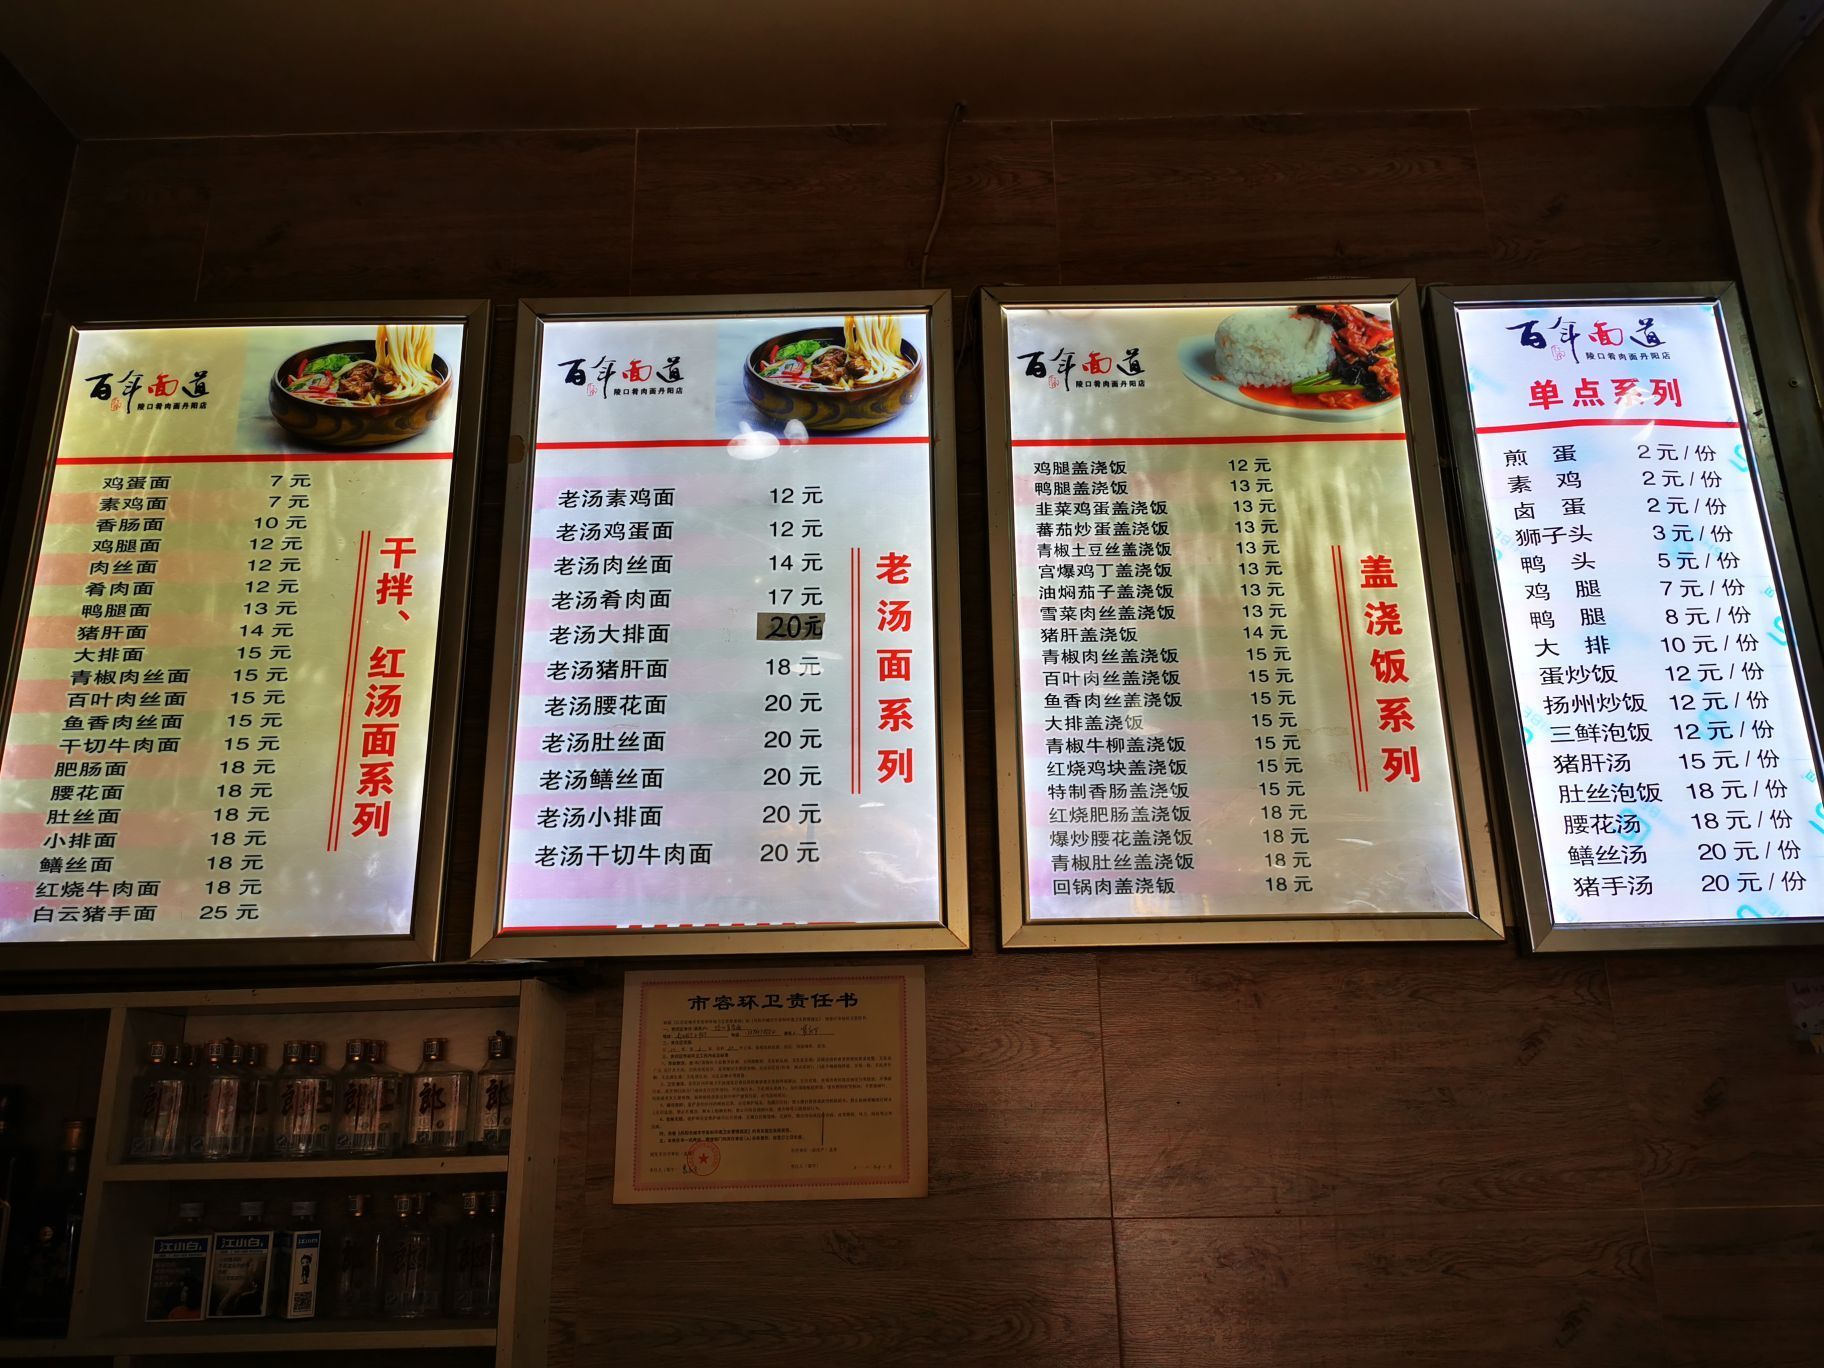 百年面道
陵口肴肉面丹阳店
鸡蛋面 7 元
素鸡面 7 元
香肠面 10 元
鸡腿面 12 元
肉丝面 12 元
肴肉面 12 元
鸭腿面 13 元
猪肝面 14 元
大排面 15 元
青椒肉丝面 15 元
百叶肉丝面 15 元
鱼香肉丝面 15 元
干切牛肉面 15 元
肥肠面 18 元
腰花面 18 元
肚丝面 18 元
小排面 18 元
鳝丝面 18 元
红烧牛肉面 18 元
白云猪手面 25 元
干拌、红汤面系列
百年面道
陵口肴肉面丹阳店
老汤素鸡面 12 元
老汤鸡蛋面 12 元
老汤肉丝面 14 元
老汤肴肉面 17 元
老汤大排面 20元
老汤猪肝面 18 元
老汤腰花面 20 元
老汤肚丝面 20 元
老汤鳝丝面 20 元
老汤小排面 20 元
老汤干切牛肉面 20 元
老汤面系列
百年面道
陵口肴肉面丹阳店
鸡腿盖浇饭 12 元
鸭腿盖浇饭 13 元
韭菜鸡蛋盖浇饭 13 元
蕃茄炒蛋盖浇饭 13 元
青椒土豆丝盖浇饭 13 元
宫爆鸡丁盖浇饭 13 元
油焖茄子盖浇饭 13 元
雪菜肉丝盖浇饭 13 元
猪肝盖浇饭 14 元
青椒肉丝盖浇饭 15 元
百叶肉丝盖浇饭 15 元
鱼香肉丝盖浇饭 15 元
大排盖浇饭 15 元
青椒牛柳盖浇饭 15 元
红烧鸡块盖浇饭 15 元
特制香肠盖浇饭 15 元
红烧肥肠盖浇饭 18 元
爆炒腰花盖浇饭 18 元
青椒肚丝盖浇饭 18 元
回锅肉盖浇钣 18 元
盖浇饭系列
百年面道
陵口肴肉面丹阳店
单点系列
煎蛋 2 元 / 份
素鸡 2 元 / 份
卤蛋 2 元 / 份
狮子头 3 元 / 份
鸭头 5 元 / 份
鸡腿 7 元 / 份
鸭腿 8 元 / 份
大排 10 元 / 份
蛋炒饭 12 元 / 份
扬州炒饭 12 元 / 份
三鲜泡饭 12 元 / 份
猪肝汤 15 元 / 份
肚丝泡饭 18 元 / 份
腰花汤 18 元 / 份
鳝丝汤 20 元 / 份
猪手汤 20 元 / 份
市容环卫责任书
郎
郎
郎
郎
郎
江小白
江小白
郎